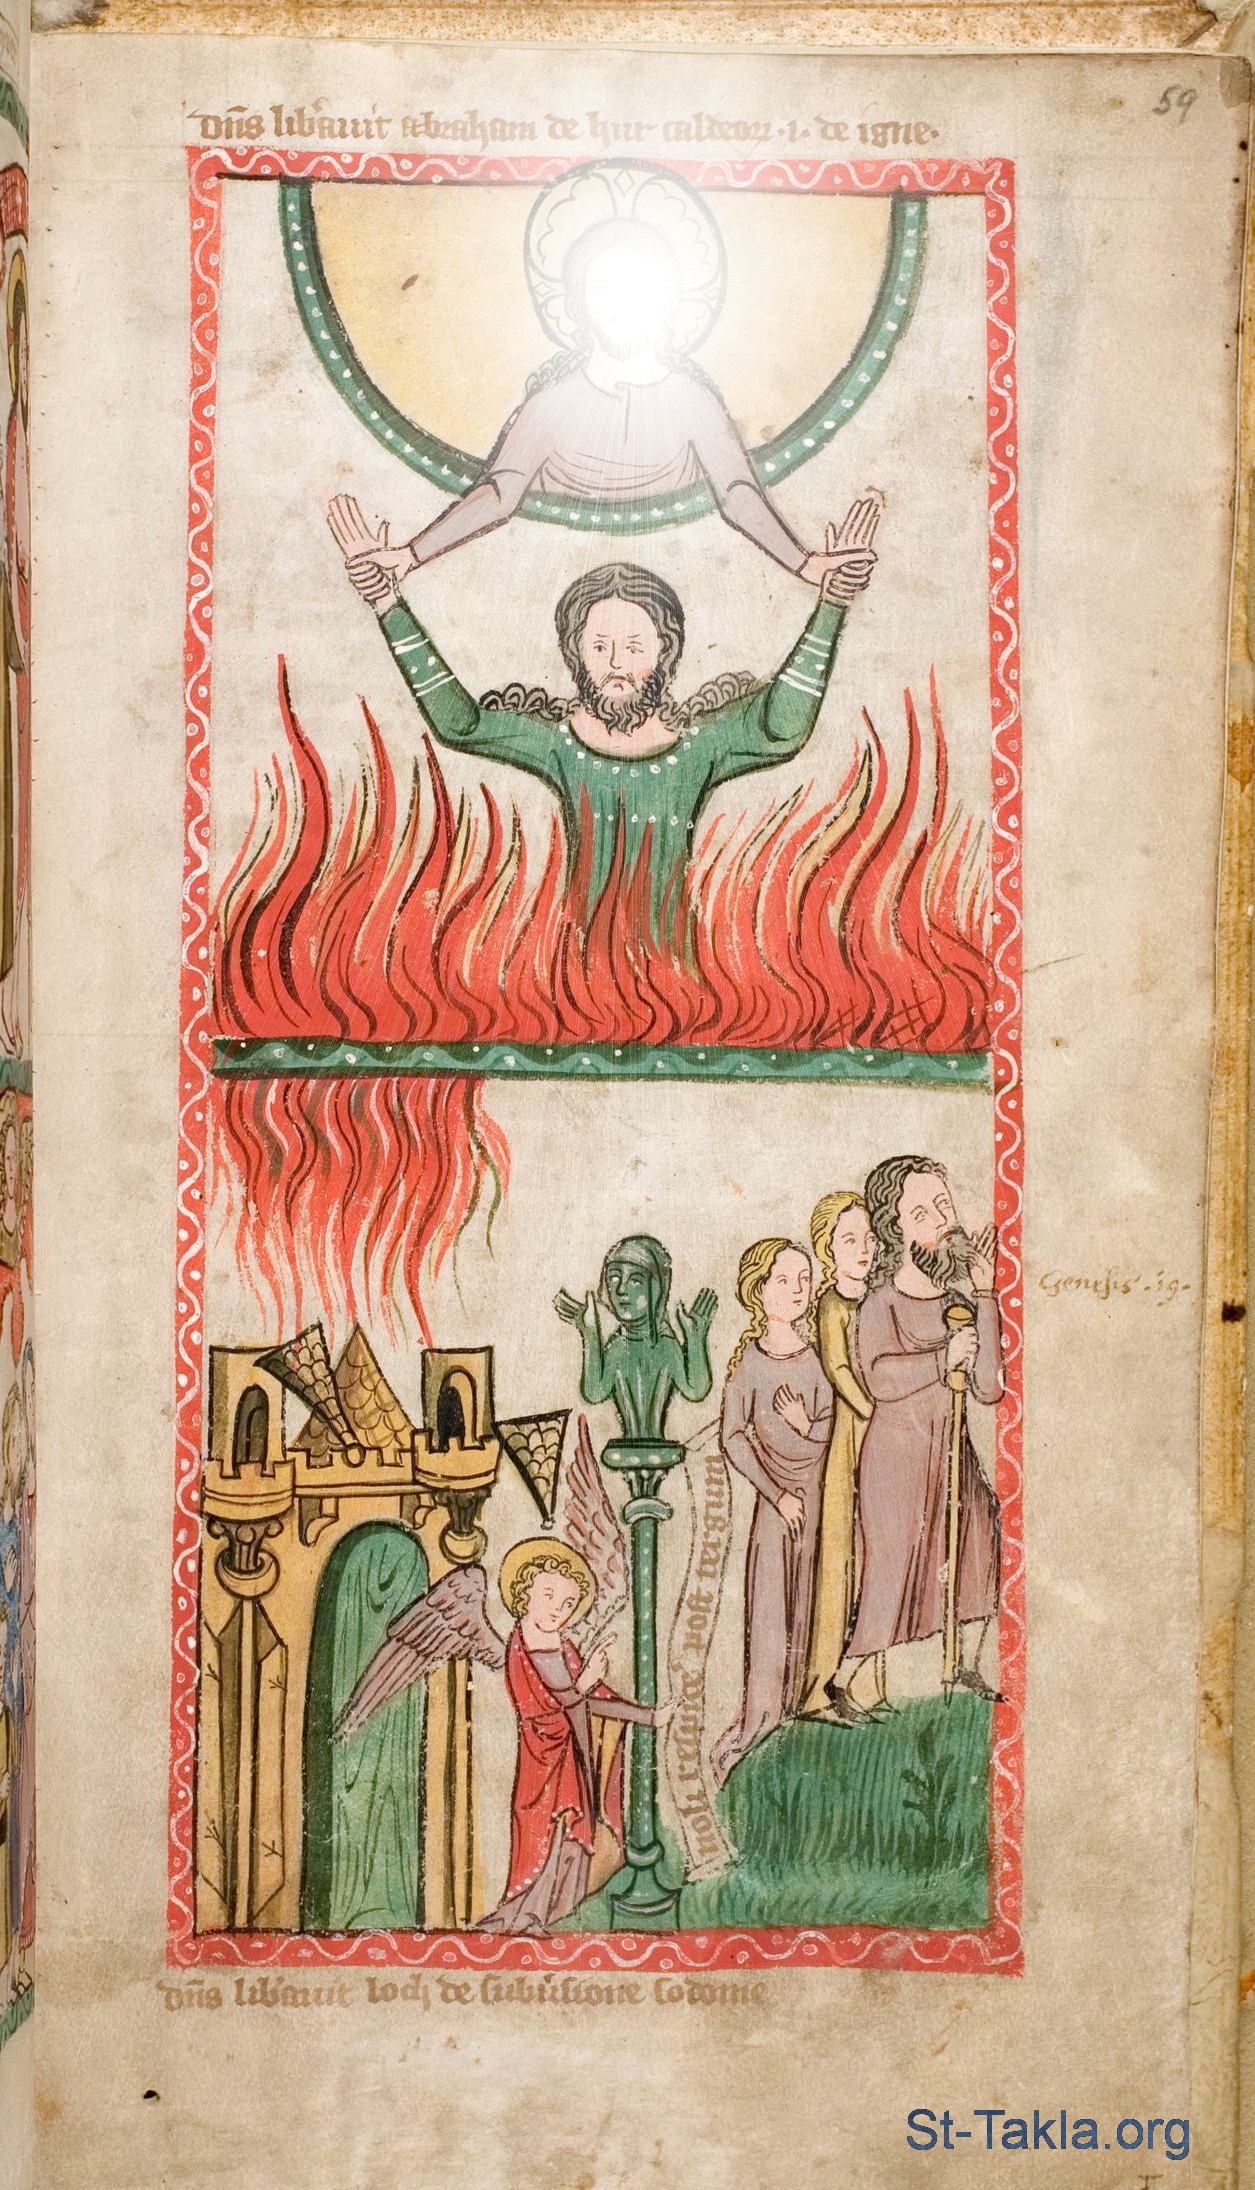 59
dn̄s lib̾auit abraham de hur caldeoꝝ ·i· de igne·
Genesis ·19·
noli respice᷑ post tergum
dn̄s lib̾auit loth de subu̾sione sodome
St-Takla.org